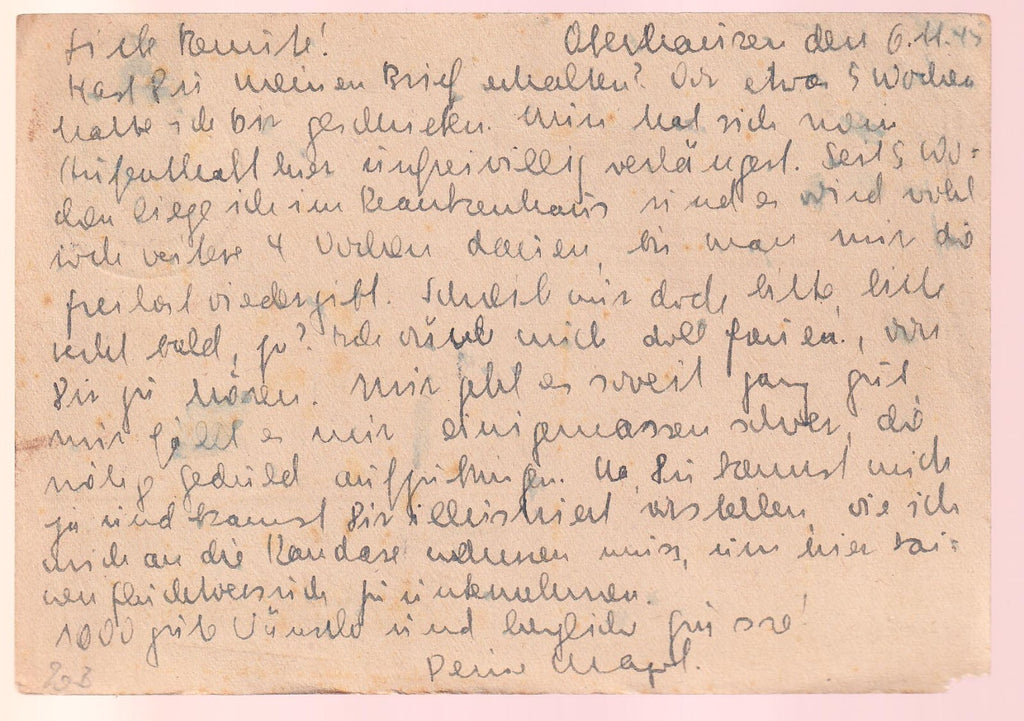 Liebe Renate! Oberhausen den 6.11.45
Hast Du meinen Brief erhalten? Vor etwa 5 Wochen
hatte ich Dir geschrieben. Nun hat sich mein
Aufenthalt hier unfreiwillig verlängert. Seit 5 Wo=
chen liege ich im Krankenhaus und es wird wohl
noch weitere 4 Wochen dauern, bis man mir die
Freiheit wiedergibt. Schreib mir doch bitte, bitte
recht bald, ja? Ich würde mich doll freuen, von
Dir zu hören. Mir geht es soweit ganz gut
nur fällt es mir einigermassen schwer, die
nötige Geduld aufzubringen. Na, Du kennst mich
ja und kannst Dir illustriert vorstellen, wie ich
mich an die Kandare nehmen muss, um hier kei=
nen Fluchtversuch zu unternehmen.
1000 gute Wünsche und herzliche Grüsse!
Deine
203